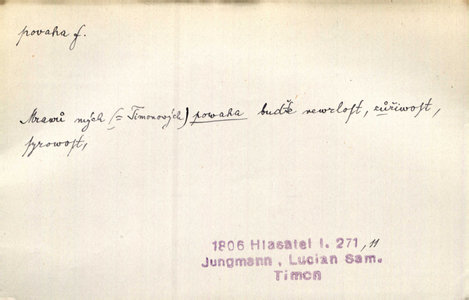 povaha f.
Mrawů mých (= Timonových) powaha buďtě newrlost, zůřiwost,
syrowost,
1806 Hlasatel I. 271, 11
Jungmann, Lucian Sam.
Timon